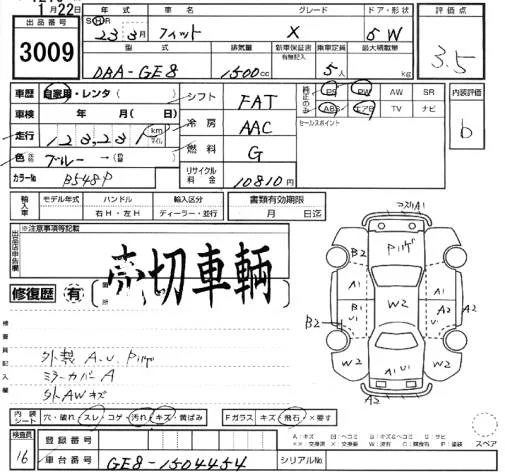 1月22日
出品番号
3009
年式 車名 グレード ドア・形状
S H R
23年3月 フィット X 5 W
型式 排気量 新車保証書 乗車定員 最大積載量
有無記入
DBA-GE8 1500cc 5人 kg
評価点
3.5
車歴 自家用・レンタ( )
車検 年 月( 日)
走行 123,231 km マイル
色 ブルー →
カラーNo B548P
シフト FAT
冷房 AAC
燃料 G
リサイクル料金 10810円
PS PW AW SR
ABS エアB TV ナビ
セールスポイント
内装評価
b
輸入車 モデル年式 ハンドル 輸入区分
年 右H・左H ディーラー・並行
書類有効期限
月 日迄
出品店申告欄
※注意事項等記載
売切車輌
修復歴 有
検査員記入欄
外装A.U.Pいげ
ミラーカバーA
外AWキズ
コスリA1
Pいげ
B2
A1
B1
U1
W2
A1
U1
A2
B2
W2
W2
A1U1
A2
内装シート 穴・破れ スレ コゲ・汚れ・キズ・黄ばみ
Fガラス キズ・飛石・×要す
A:キズ U:ヘコミ B:キズ&ヘコミ S:サビ
××:交換済 ×:交換要 W:波有 C:腐食有 P:塗装
スペア
検査員 16
登録番号
車台番号 GE8-1504454
シリアルNo